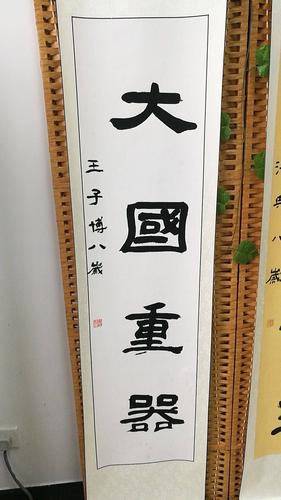 大國重器
王子博八歲
八歲